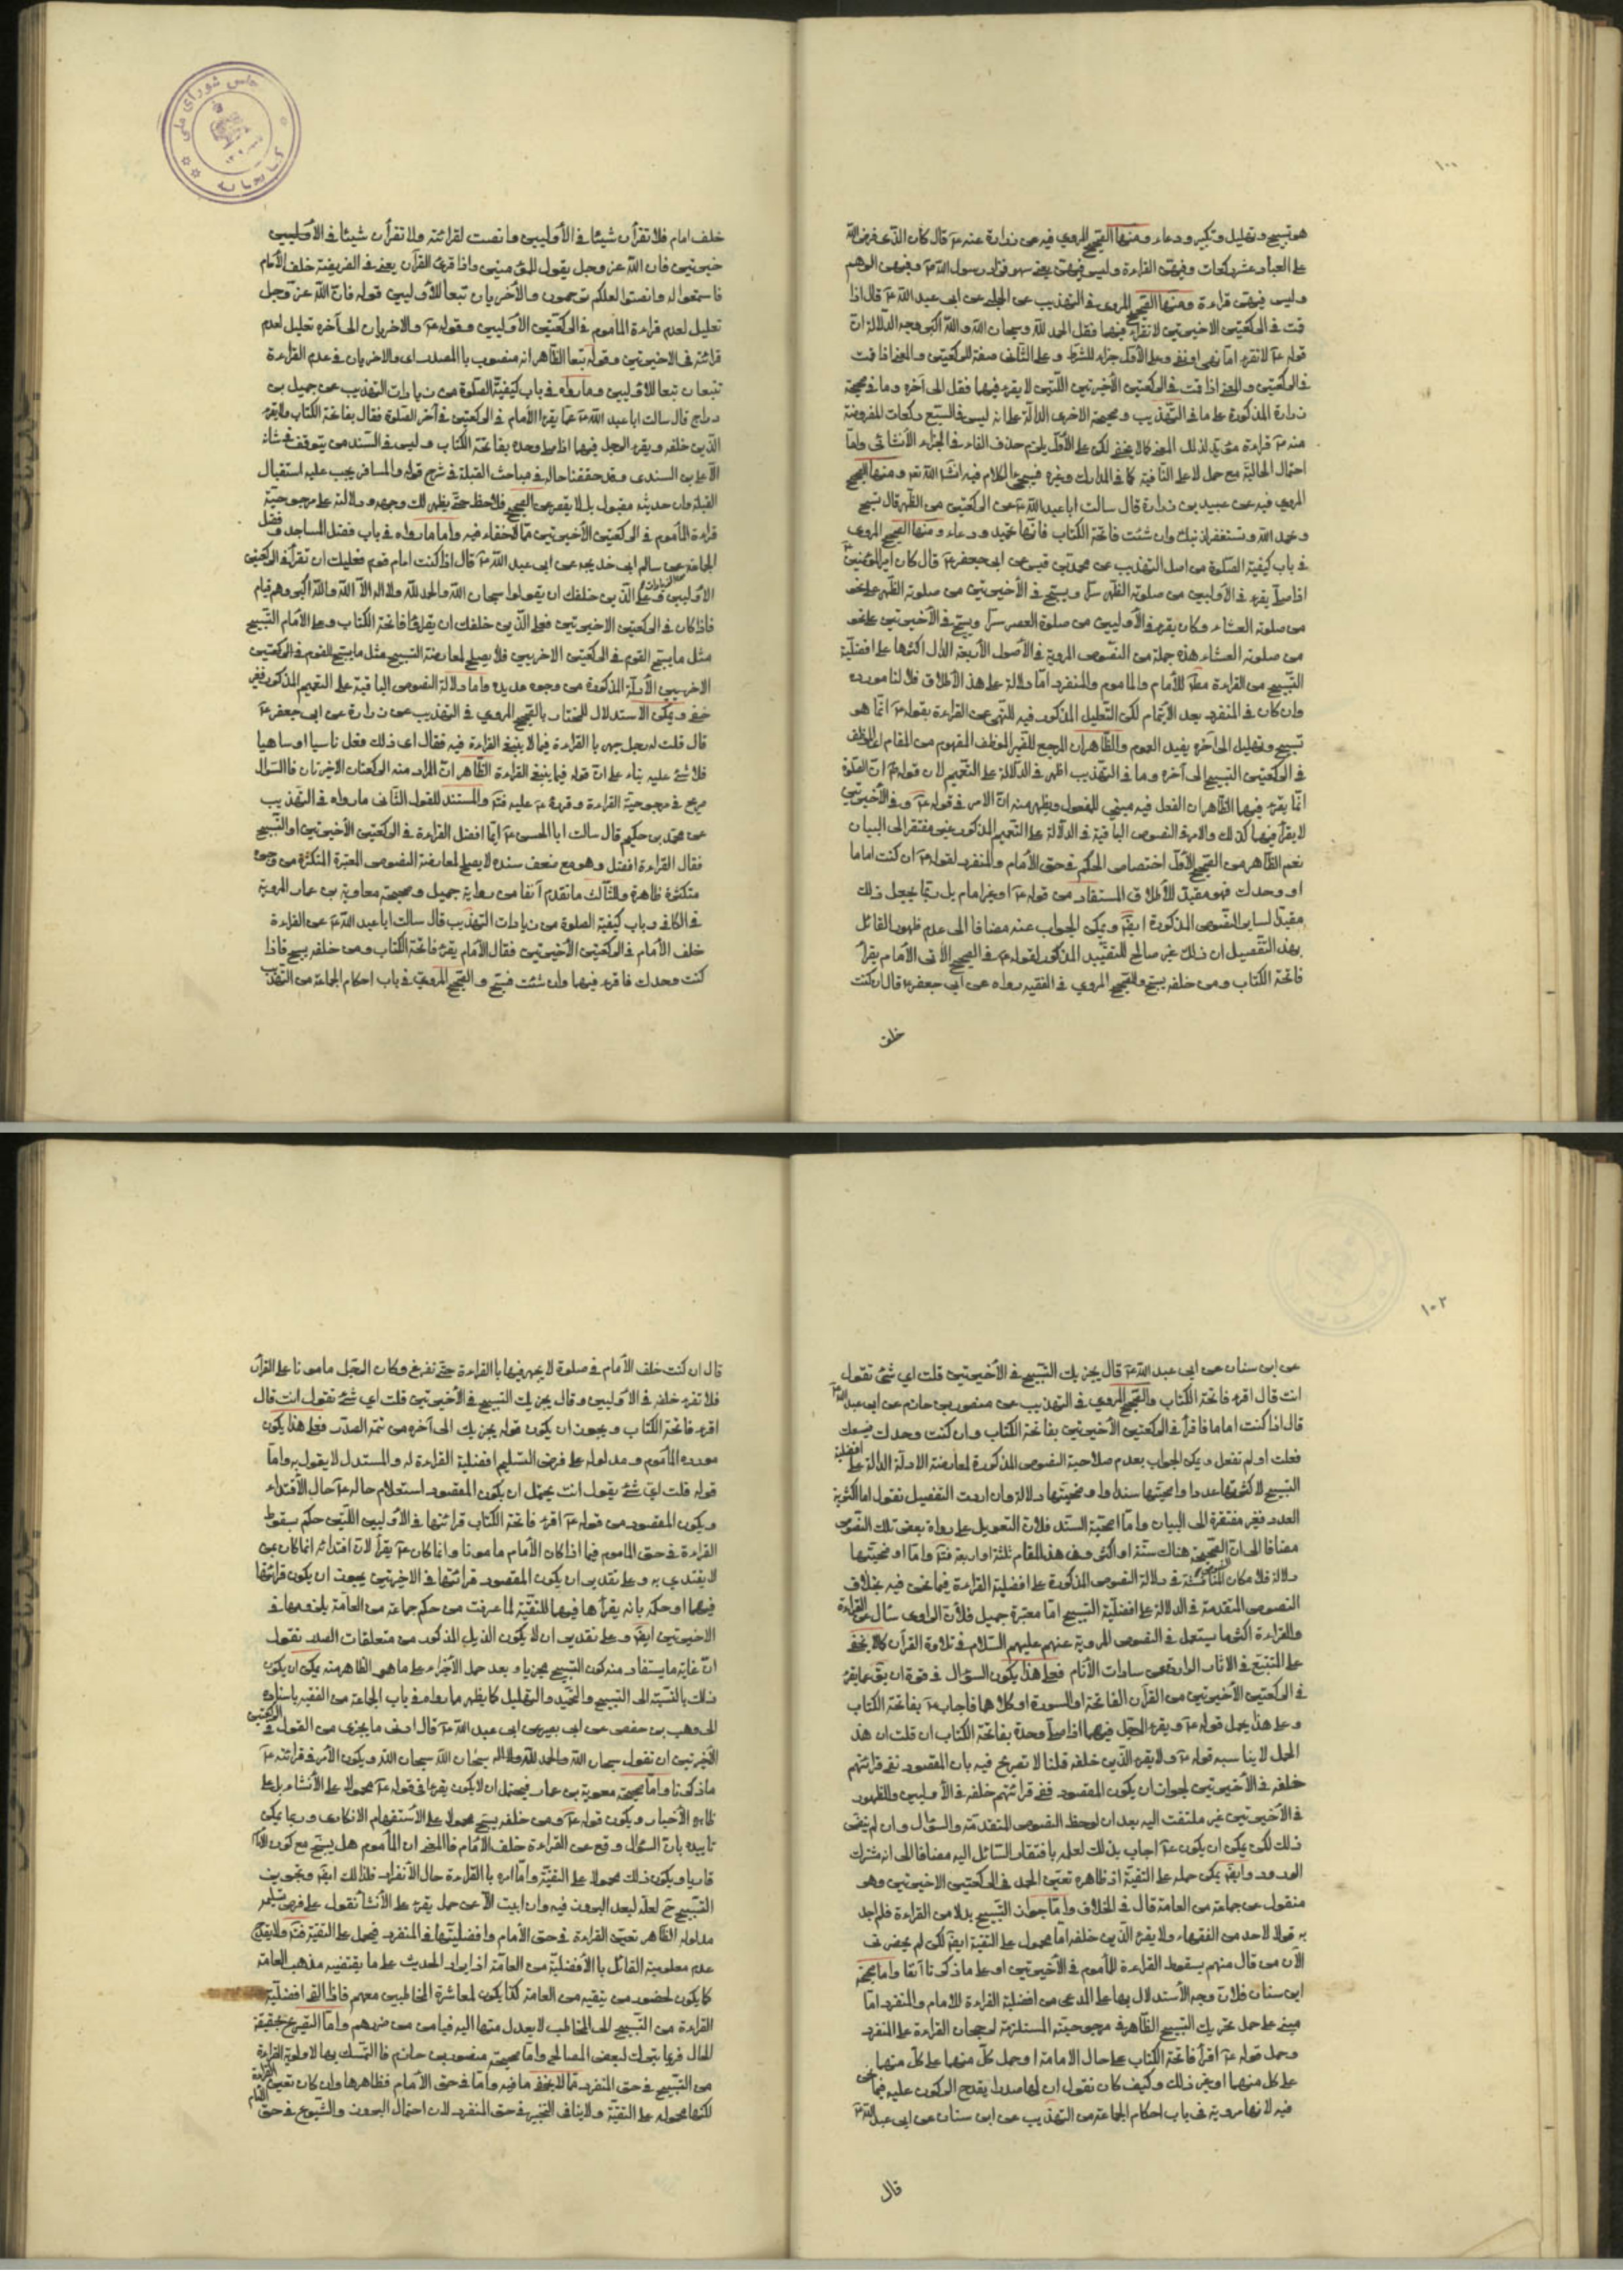 ١٠٠
هو تسبيح وتهليل وتكبير ودعاء ومنها الصحيح المروي فيه عن زرارة عنه ع قال كان الذي فرض الله
على العباد عشر ركعات وفيهن القراءة وليس فيهن وهم يعني سهو فزاد رسول الله ص وفيهن الوهم
وليس فيهن قراءة ومنها الصحيح المروي في التهذيب عن الحلبي عن ابي عبد الله ع قال اذا
قمت في الركعتين الاخيرتين لا تقرأ فيهما فقل الحمد لله وسبحان الله والله اكبر وجه الدلالة ان
قوله ع لا تقرء اما نهي او نفي وعلى الأول جزاء للشرط وعلى الثاني صفة للركعتين والمعنى اذا قمت
في الركعتين الأخيرتين اللتين لا يقرء فيهما فقل الى آخره وما في صحيحة
زرارة المذكورة على ما في التهذيب وصحيحة الاخرى الدالة على انه ليس في السبع ركعات المفروضة
منه ص قراءة مؤيد لذلك المعنى كما لا يخفى لكن على الأول يلزم حذف الفاء في الجزاء الأنشائي واما
احتمال الحالية مع حمل لا على النافية كما في المدارك وغيره فسيجئ الكلام فيه انشاء الله تعالى ومنها الصحيح
المروي فيه عن عبيد بن زرارة قال سالت ابا عبد الله ع عن الركعتين من الظهر قال تسبح
وتحمد الله وتستغفر لذنبك وان شئت فاتحة الكتاب فانها تحميد ودعاء ومنها الصحيح المروي
في باب كيفية الصلوة من اصل التهذيب عن محمد بن قيس عن ابي جعفر ع قال كان امير المؤمنين ع
اذا صلى يقرء في الأوليين من صلوته الظهر سرا ويسبح في الأخيرتين من صلوته الظهر على نحو
من صلوته العشاء وكان يقرء في الأوليين من صلوة العصر سرا ويسبح في الأخيرتين على نحو
من صلوته العشاء هذه جملة من النصوص المروية في الأصول الأربعة الدال اكثرها على افضلية
التسبيح من القراءة مطلقا للأمام والماموم والمنفرد اما دلالة على هذا الأطلاق فلأنا مورده
وان كان في المنفرد بعد الايتمام لكن التعليل المذكور فيه للنهي عن القراءة بقوله ع انما هو
تسبيح وتهليل الى آخره يفيد العموم والظاهر ان المرجع للضمير الموظف المفهوم من المقام اي الموظف
في الركعتين التسبيح الى آخره وما في التهذيب اظهر في الدلالة على التعميم لان قوله ع ان الصلوة
انما يقرء فيهما الظاهر ان الفعل فيه مبني للمفعول ويظهر منه ان الامر في قوله ع وفي الأخيرتين
لا يقرأ فيهما كذلك والامر في النصوص الباقية في الدلالة على التعميم المذكور غير مفتقر الى البيان
نعم الظاهر من الصحيح الأول اختصاص الحكم في حق الأمام والمنفرد لقوله ع ان كنت اماما
او وحدك فهو مقيد للأطلاق المستفاد من قوله ع او غير امام بل ربما يجعل ذلك
مقيدا لساير النصوص المذكورة ايضا ويمكن الجواب عنه مضافا الى عدم ظهور القائل
بهذا التفصيل ان ذلك غير صالح للتقييد المذكور لقوله ع في الصحيح الآتي الأمام يقرأ
فاتحة الكتاب ومن خلفه يسبح والصحيح المروي في الفقيه رواه عن ابي جعفر ع قال ان كنت
خلف
خلف امام فلا تقرأن شيئا في الأوليين وانصت لقرائته ولا تقرأن شيئا في الأوليين
خيرتين فان الله عز وجل يقول للمؤمنين واذا قرئ القرآن يعني في الفريضة خلف الأمام
فاستمعوا له وانصتوا لعلكم ترحمون والأخريان تبعا للأوليين قوله فان الله عز وجل
تعليل لعدم قراءة المأموم في الركعتين الأوليين وقوله ع والاخريان الى آخره تعليل لعدم
قرائته في الاخيرتين وقوله تبعا الظاهر انه منصوب بالمصدر اي والاخريان في عدم القراءة
تتبعان تبعا للاوليين وما رواه في باب كيفية الصلوة من زيادات التهذيب عن جميل بن
دراج قال سالت ابا عبد الله ع عما يقرء الأمام في الركعتين في آخر الصلوة فقال بفاتحة الكتاب ولا يقرء
الذين خلفه ويقرء الرجل فيهما اذا صلى وحده بفاتحة الكتاب وليس في السند من يتوقف في شانه
الا علي بن السندي وقد حققنا حاله في مباحث القبلة في شرح قوله والمسافر يجب عليه استقبال
القبلة وان حديثه مقبول بل لا يقصر عن الصحيح فلاحظ حتى يظهر لك وجهه ودلالته على مرجوحية
قراءة المأموم في الركعتين الأخيرتين مما لا خفاء فيه واما ما رواه في باب فضل المساجد وفضل
الجماعة عن سالم ابي خديجة عن ابي عبد الله ع قال اذا كنت امام قوم فعليك ان تقرأ في الركعتين
الأوليين وعلى الذين خلفك ان يقولوا سبحان الله والحمد لله ولا اله الا الله والله اكبر وهم قيام
فاذا كان في الركعتين الاخيرتين فعلى الذين خلفك ان يقرؤا فاتحة الكتاب وعلى الأمام التسبيح
مثل ما يسبح القوم في الركعتين الاخريين فلا يصلح لمعارضة التسبيح مثل ما يسبح القوم في الركعتين
الاخريين الأدلة المذكورة من وجوه عديدة واما دلالة النصوص الباقية على التعميم المذكور فغير
خفي ويمكن الاستدلال للمختار بالصحيح المروي في التهذيب عن زرارة عن ابي جعفر ع
قال قلت له رجل جهر بالقراءة فيما لا ينبغي القراءة فيه فقال اي ذلك فعل ناسيا او ساهيا
فلا شئ عليه بناء على ان قوله فيما ينبغي القراءة الظاهر ان المراد منه الركعتان الاخيرتان فالسؤال
صريح في مرجوحية القراءة وقرره ع عليه فتد والمستند للقول الثاني ما رواه في التهذيب
عن محمد بن حكيم قال سالت ابا الحسن ع ايما افضل القراءة في الركعتين الأخيرتين او التسبيح
فقال القراءة افضل وهو مع ضعف سنده لا يصلح لمعارضة النصوص المعتبرة المتكثرة من وجوه
متكثرة ظاهرة والثالث ما تقدم آنفا من رواية جميل وصحيحة معاوية بن عمار المروية
في الكافي وباب كيفية الصلوة من زيادات التهذيب قال سالت ابا عبد الله ع عن القراءة
خلف الأمام في الركعتين الأخيرتين فقال الأمام يقرء فاتحة الكتاب ومن خلفه يسبح فاذا
كنت وحدك فاقرء فيهما وان شئت فسبح والصحيح المروي في باب احكام الجماعة من التهذيب
١٠٢
عن ابن سنان عن ابي عبد الله ع قال يجزيك التسبيح في الأخيرتين قلت اي شئ تقول
انت قال اقرء فاتحة الكتاب والصحيح المروي في التهذيب عن منصور بن حازم عن ابي عبد الله ع
قال اذا كنت اماما فاقرأ في الركعتين الأخيرتين بفاتحة الكتاب وان كنت وحدك فيسعك
فعلت او لم تفعل ويمكن الجواب بعدم صلاحية النصوص المذكورة لمعارضة الادلة الدالة على افضلية
التسبيح لاكثريتها عددا واصحيتها سندا واوضحيتها دلالة وان اردت التفصيل نقول اما اكثرية
العدد فغير مفتقرة الى البيان واما اصحية السند فلان التعويل على رواة بعض تلك النصوص
مضافا الى ان الصحيح هناك ستة او اكثر وفي هذا المقام ثلثة او اربعة فتد واما اوضحيتها
دلالة فلامكان المناقشة في دلالة النصوص المذكورة على افضلية القراءة فيما نحن فيه بخلاف
النصوص المتقدمة في الدلالة على افضلية التسبيح اما معتبرة جميل فلأن الراوي سأل عن القراءة
والقراءة اكثر ما يستعمل في النصوص المروية عنهم عليهم السلام في تلاوة القرآن كما لا يخفى
على المتتبع في الآثار الواردة عن سادات الأنام فعلى هذا يكون السؤال في قوة ان يق عما يقرء
في الركعتين الأخيرتين من القرآن الفاتحة او السورة او كلاهما فاجاب ع بفاتحة الكتاب
وعلى هذا يحمل قوله ع ويقرء الرجل فيهما اذا صلى وحده بفاتحة الكتاب ان قلت ان هذا
الحمل لا يناسبه قوله ع ولا يقرء الذين خلفه قلنا لا تصريح فيه بان المقصود نفي قرائتهم
خلفه في الأخيرتين لجواز ان يكون المقصود نفي قرائتهم خلفه في الأوليين والظهور
في الأخيرتين غير ملتفت اليه بعد ان لوحظ النصوص المتقدمة والسؤال وان لم يقتض
ذلك لكن يمكن ان يكون ع اجاب بذلك لعلمه بافتقار السائل اليه مضافا الى انه مشترك
الورود وايضا يمكن حمله على التقية اذ ظاهره تعين الحمد في الركعتين الاخيرتين وهو
منقول عن جماعة من العامة قال في الخلاف واما جواز التسبيح بدلا من القراءة فلم اجد
به قولا لاحد من الفقهاء ولا يقرء الذين خلفه اما محمول على التقية ايضا لكن لم يحضرني
الآن من قال منهم بسقوط القراءة للمأموم في الأخيرتين او على ما ذكرنا آنفا واما صحيحة
ابن سنان فلان وجه الأستدلال بها على المدعى من افضلية القراءة للامام والمنفرد اما
مبني على حمل يجزيك التسبيح الظاهر في مرجوحيته المستلزمة لرجحان القراءة على المنفرد
وحمل قوله ع اقرأ فاتحة الكتاب على حال الامامة او حمل كل منهما على كل منهما
على كل منهما او غير ذلك وكيف كان نقول ان لها صدرا يقدح الركون عليه فيما نحن
فيه لانها مروية في باب احكام الجماعة من التهذيب عن ابن سنان عن ابي عبد الله ع
قال
قال ان كنت خلف الأمام في صلوة لا يجهر فيها بالقراءة حتى تفرغ وكان الرجل مامونا على القرآن
فلا تقرء خلفه في الاوليين وقال يجزيك التسبيح في الأخيرتين قلت اي شئ تقول انت قال
اقرء فاتحة الكتاب ويجوز ان يكون قوله يجزيك الى آخره من تتمة الصدر فعلى هذا يكون
مورده المأموم ومدلوله على فرض التسليم افضلية القراءة له والمستدل لا يقول به واما
قوله قلت اي شئ يقول انت يحتمل ان يكون المقصود استعلام حاله ع حال الأقتداء
ويكون المقصود من قوله ع اقرء فاتحة الكتاب قرائتها في الأوليين اللتين حكم بسقوط
القراءة في حق الماموم فيما اذا كان الأمام مامونا وانما كان ع يقرأ لان اقتدائه انما كان بمن
لا يقتدي به وعلى تقدير ان يكون المقصود قرائتها في الاخيرتين يجوز ان يكون قرائتها
فيهما او حكمه بانه يقرأها فيهما للتقية لما عرفت من حكم جماعة من العامة بلزومها في
الاخيرتين ايضا وعلى تقدير ان لا يكون الذيل المذكور من متعلقات الصدر نقول
ان غاية ما يستفاد منه كون التسبيح مجزيا وبعد حمل الأجزاء على ما هو الظاهر منه يمكن ان يكون
ذلك بالنسبة الى التسبيح والتحميد والتهليل كما يظهر مما رواه في باب الجماعة من الفقيه باسناده
الى وهيب بن حفص عن ابي بصير عن ابي عبد الله ع قال ادنى ما يجزي من القول في الركعتين
الأخيرتين ان تقول سبحان الله سبحان الله سبحان الله ويكون الأمر في قرائته ع
ما ذكرنا واما صحيحة معوية بن عمار فيحتمل ان لا يكون يقرء في قوله ع محمولا على الأنشاء بل على
ظاهره الأخبار ويكون قوله ع ومن خلفه يسبح محمولا على الأستفهام الانكاري وربما يمكن
تاييده بان السؤال وقع عن القراءة خلف الأمام فالمعنى ان المأموم هل يسبح مع كون الأمام
قاريا ويكون ذلك محمولا على التقية واما امره بالقراءة حال الأنفراد فلذلك ايضا وتجويز
التسبيح ح لعله لبعد البروز فيه وان ابيت الا عن حمل يقرء على الأنشاء نقول على فرض تسليمه
مدلوله الظاهر تعين القراءة في حق الأمام وافضليتها في المنفرد فيحمل على التقية فتد ولا يقدح
عدم معلومية القائل بالأفضلية من العامة اذ ايراد الحديث على ما يقتضيه مذهب العامة
كما يكون لحضور من يتقيه من العامة كذا يكون لمعاشرة المخاطبين معهم فاظهار افضلية
القراءة من التسبيح الى المخاطب لا يعدل منها اليه فيأمن من ضررهم واما التصريح بحقيقة
الحال فربما يترك لبعض المصالح واما صحيحة منصور بن حازم فالتمسك بها لاولوية القراءة
من التسبيح في حق المنفرد مما لا يخفى ما فيه واما في حق الأمام فظاهرها وان كان تعين القراءة
لكنها محمولة على التقية ولا ينافي التخيير في حق المنفرد لان احتمال البروز والشيوع في حق الامام
مجلس شورای ملی
کتابخانه